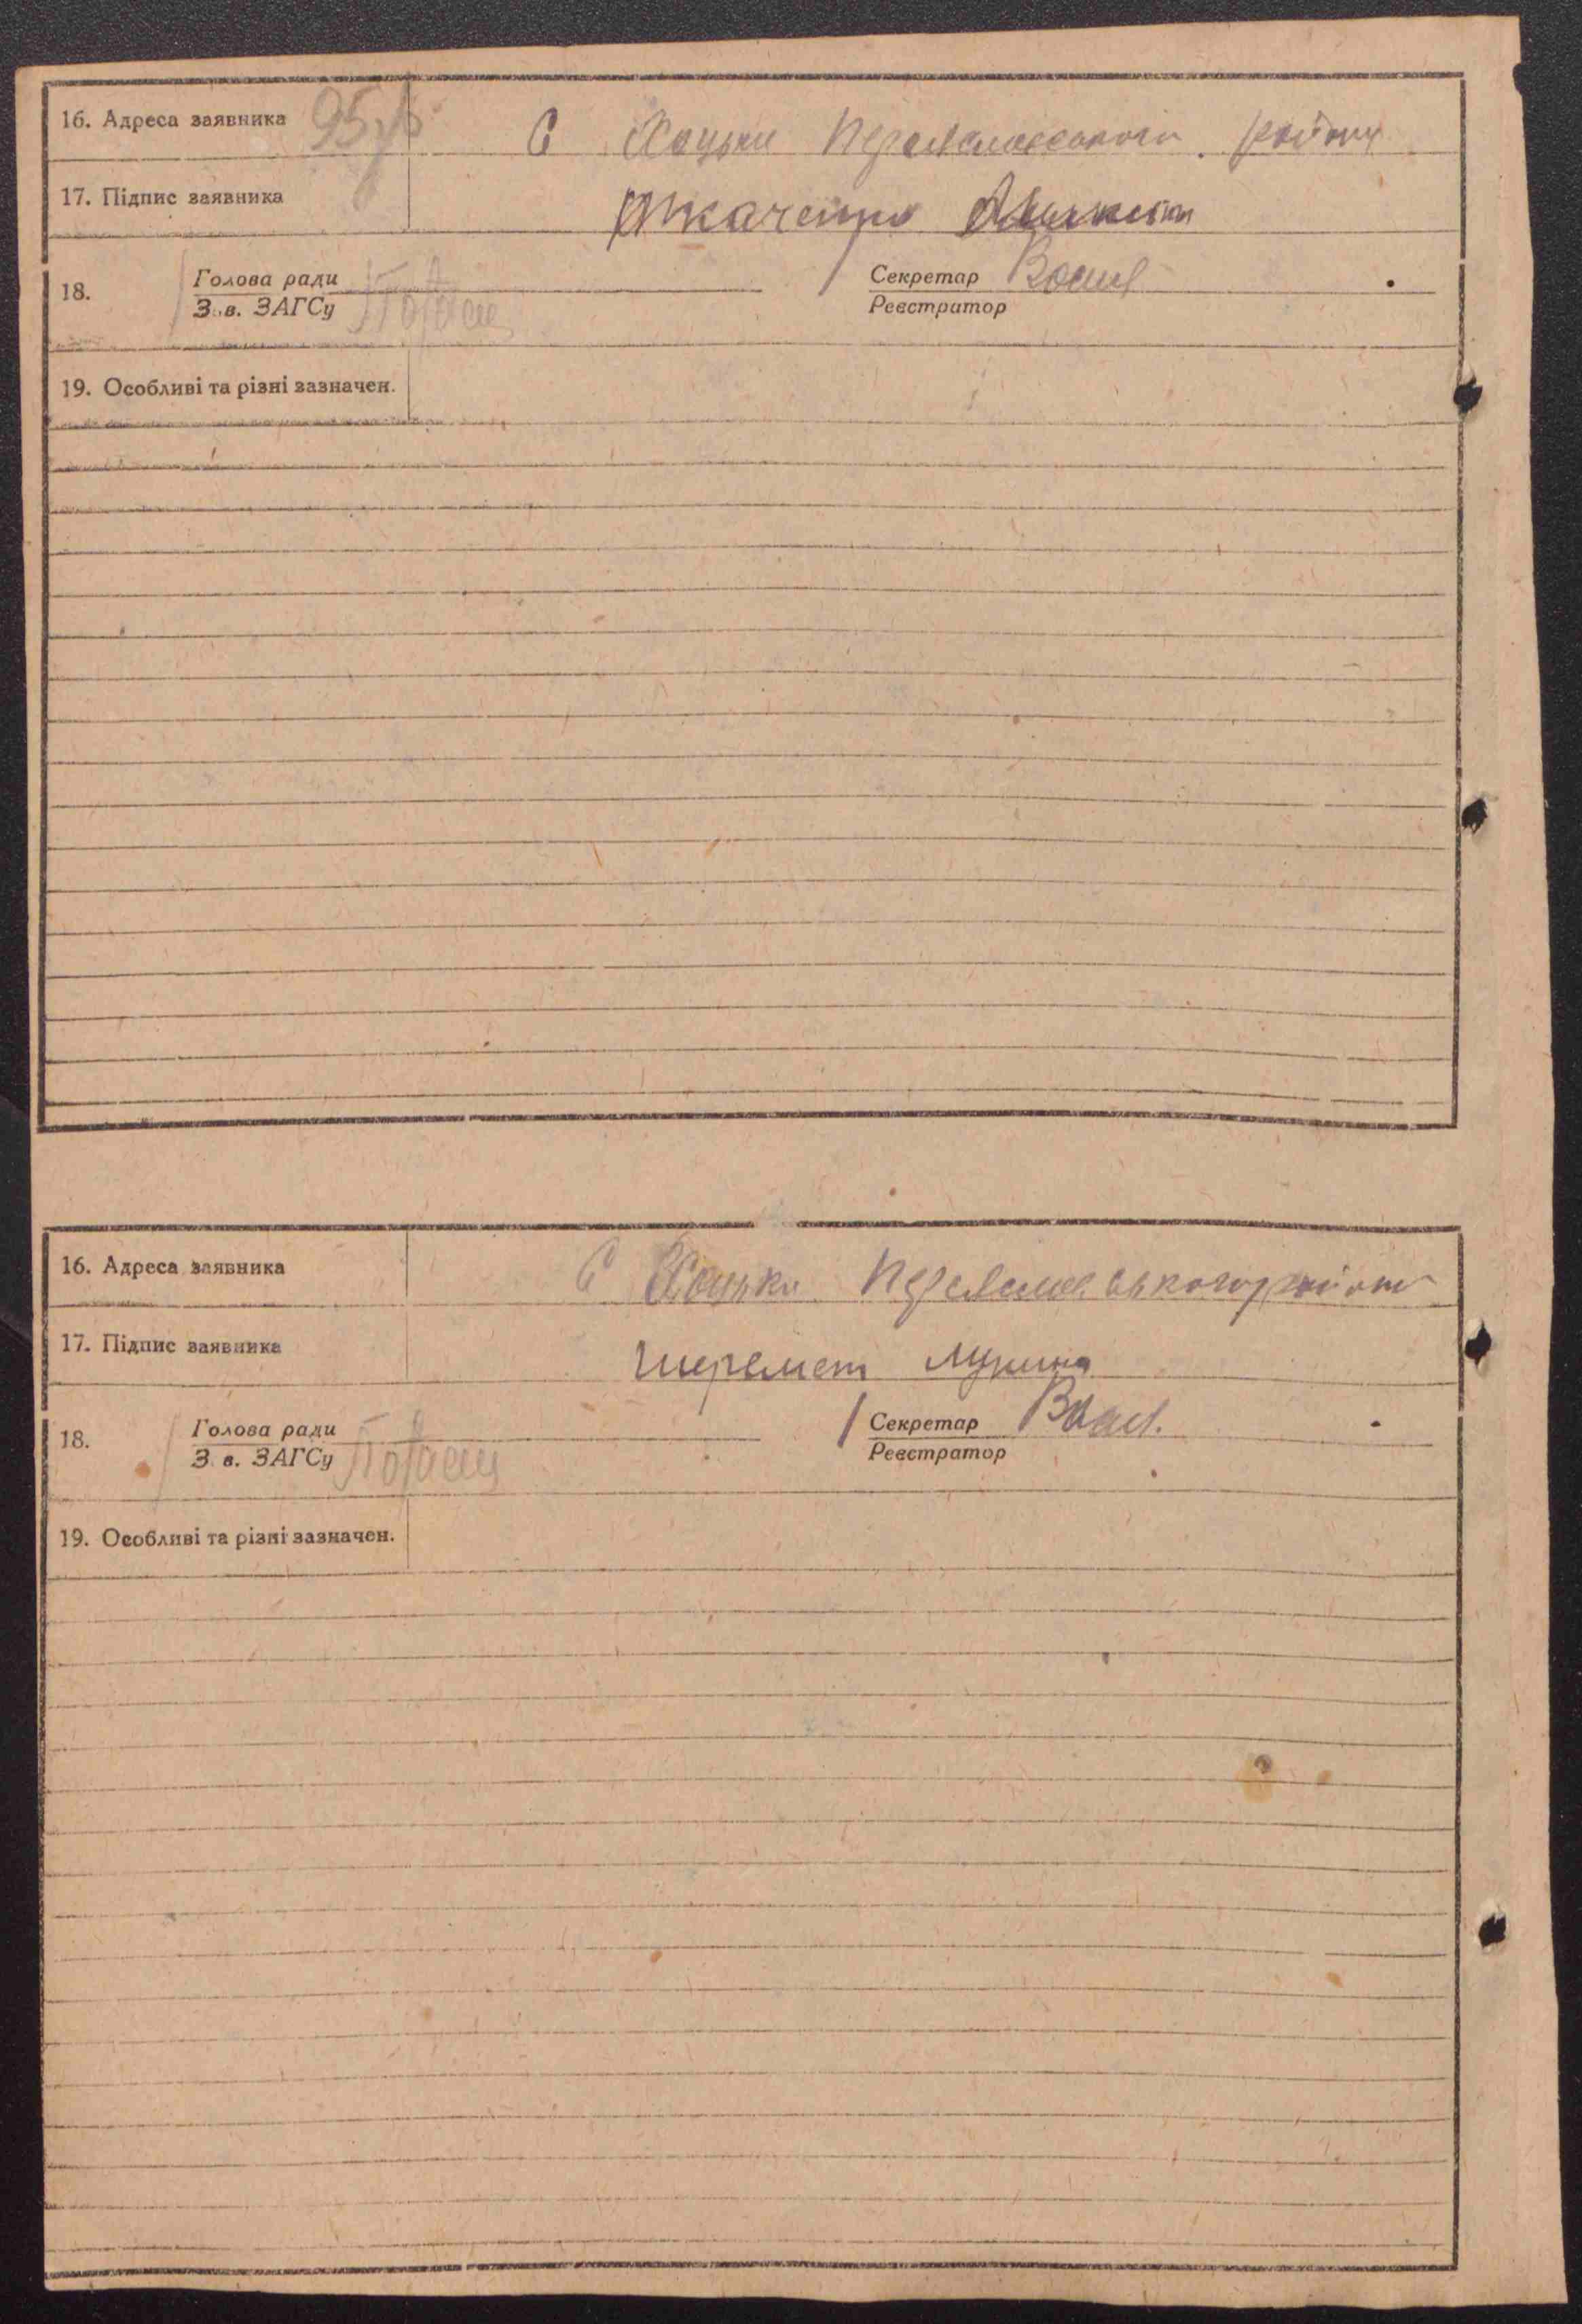 16. Адреса заявника 95 С Хоцьки Переяславського району
17. Підпис заявника Ткаченко
18. Голова ради Секретар
З.в. ЗАГСу Реєстратор
19. Особливі та різні зазначен.
16. Адреса заявника С Хоцьки Переяславського району
17. Підпис заявника Шеремет Лукина
18. Голова ради Секретар
З.в. ЗАГСу Реєстратор
19. Особливі та різні зазначен.